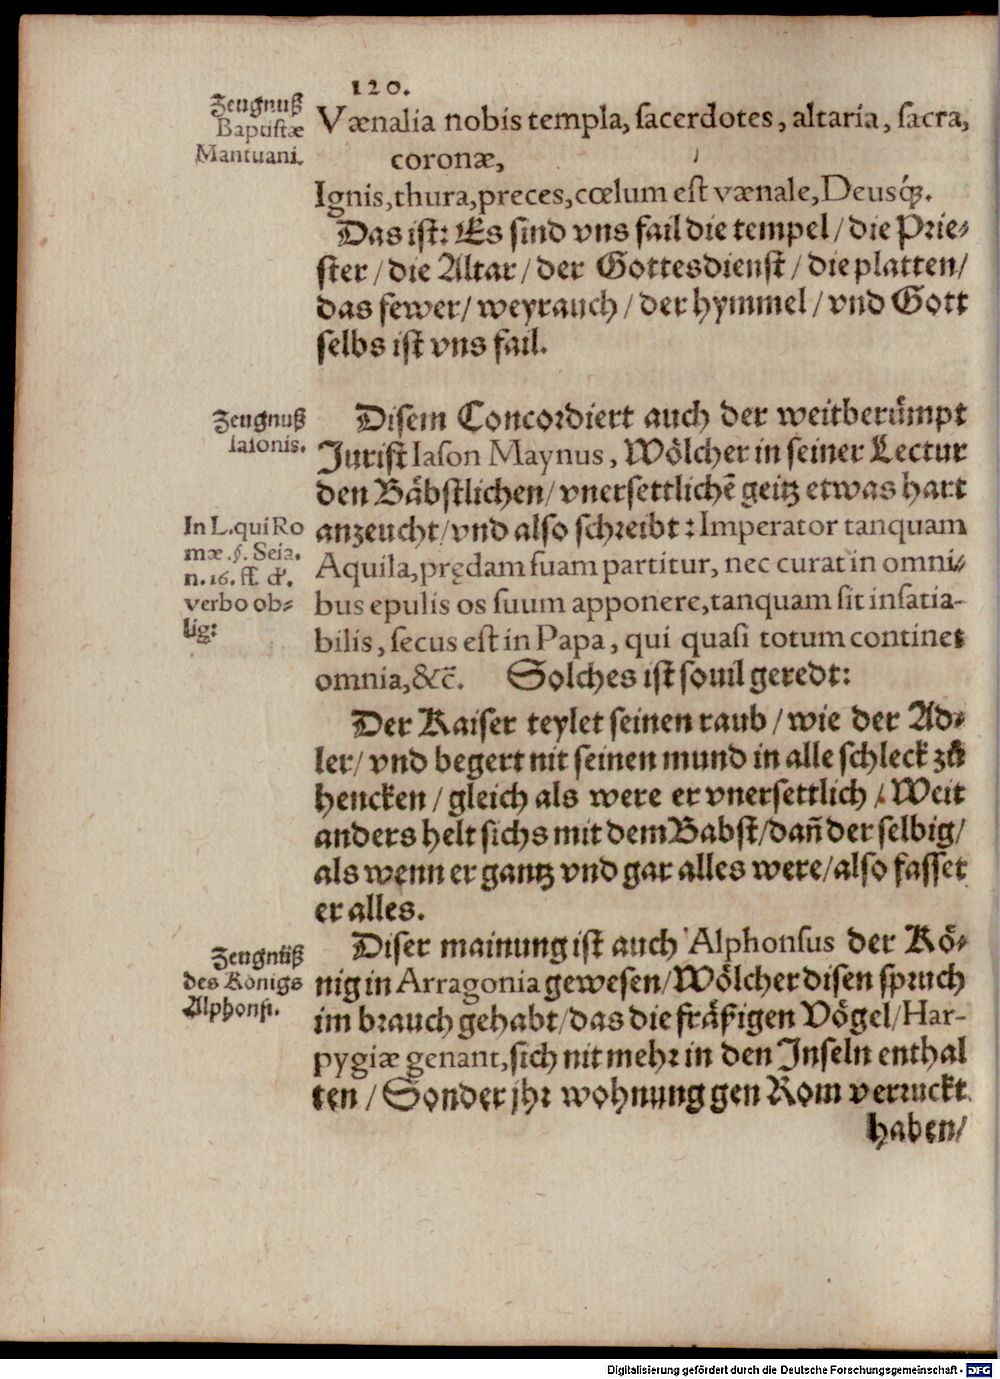 120.
Zeugnuß
Baptistæ
Mantuani.
Vænalia nobis templa, sacerdotes, altaria, sacra,
coronæ,
Ignis, thura, preces, cœlum est vænale, Deusq́;.
Das ist: Es sind vns fail die tempel / die Prie⸗
ster / die Altar / der Gottesdienst / die platten /
das fewer / weyrauch / der hymmel / vnd Gott
selbs ist vns fail.
Zeugnuß
Iasonis.
Disem Concordiert auch der weitberůmpt
Jurist Iason Maynus, Wölcher in seiner Lectur
den Bäbstlichen / vnersettlichē geitz etwas hart
In L. qui Ro
mæ. §. Seia.
n. 16. ff. de.
verbo ob⸗
lig:
anzeucht / vnd also schreibt: Imperator tanquam
Aquila, prędam suam partitur, nec curat in omni⸗
bus epulis os suum apponere, tanquam sit insatia-
bilis, secus est in Papa, qui quasi totum continet
omnia, &c̄. Solches ist souil geredt:
Der Kaiser teylet seinen raub / wie der Ad⸗
ler / vnd begert nit seinen mund in alle schleck zů
hencken / gleich als were er vnersettlich / Weit
anders helt sichs mit dem Babst / dañ der selbig /
als wenn er gantz vnd gar alles were / also fasset
er alles.
Zeugnuß
des Königs
Alphonsi.
Diser mainung ist auch Alphonsus der Kö⸗
nig in Arragonia gewesen / Wölcher disen spruch
im brauch gehabt / das die fräßigen Vögel / Har-
pygiæ genant, sich nit mehr in den Inseln enthal
ten / Sonder jhr wohnung gen Rom verruckt
haben /
Digitalisierung gefördert durch die Deutsche Forschungsgemeinschaft - DFG